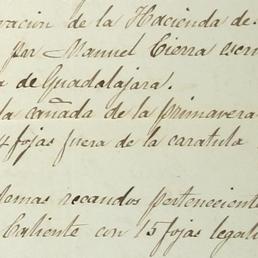 vacion de la Hacienda de
por Manuel Cierra escri
a de Guadalajara.
la cañada de la primavera
4 fojas fuera de la caratula
demas recaudos pertenecient
Caliente con 15 fojas legali